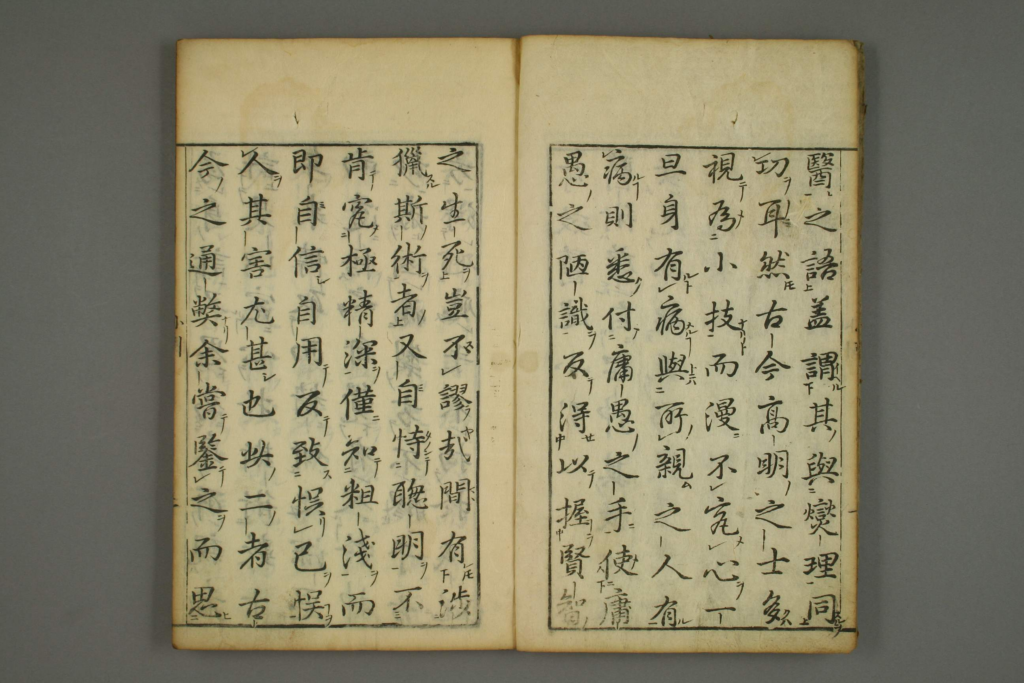 醫之語盖謂其與燮理同
功耳然古今髙明之士多
視為小技而漫不究心一
旦身有病與所親之人有
病則悉付庸愚之手使庸
愚之陋識反得以握賢智
之生死豈不謬哉間有涉
獵斯術者又自恃聰明不
肯究極精深僅知粗淺而
即自信自用反致悞已悞
人其害尤甚也此二者古
今之通弊余嘗鑒之而思